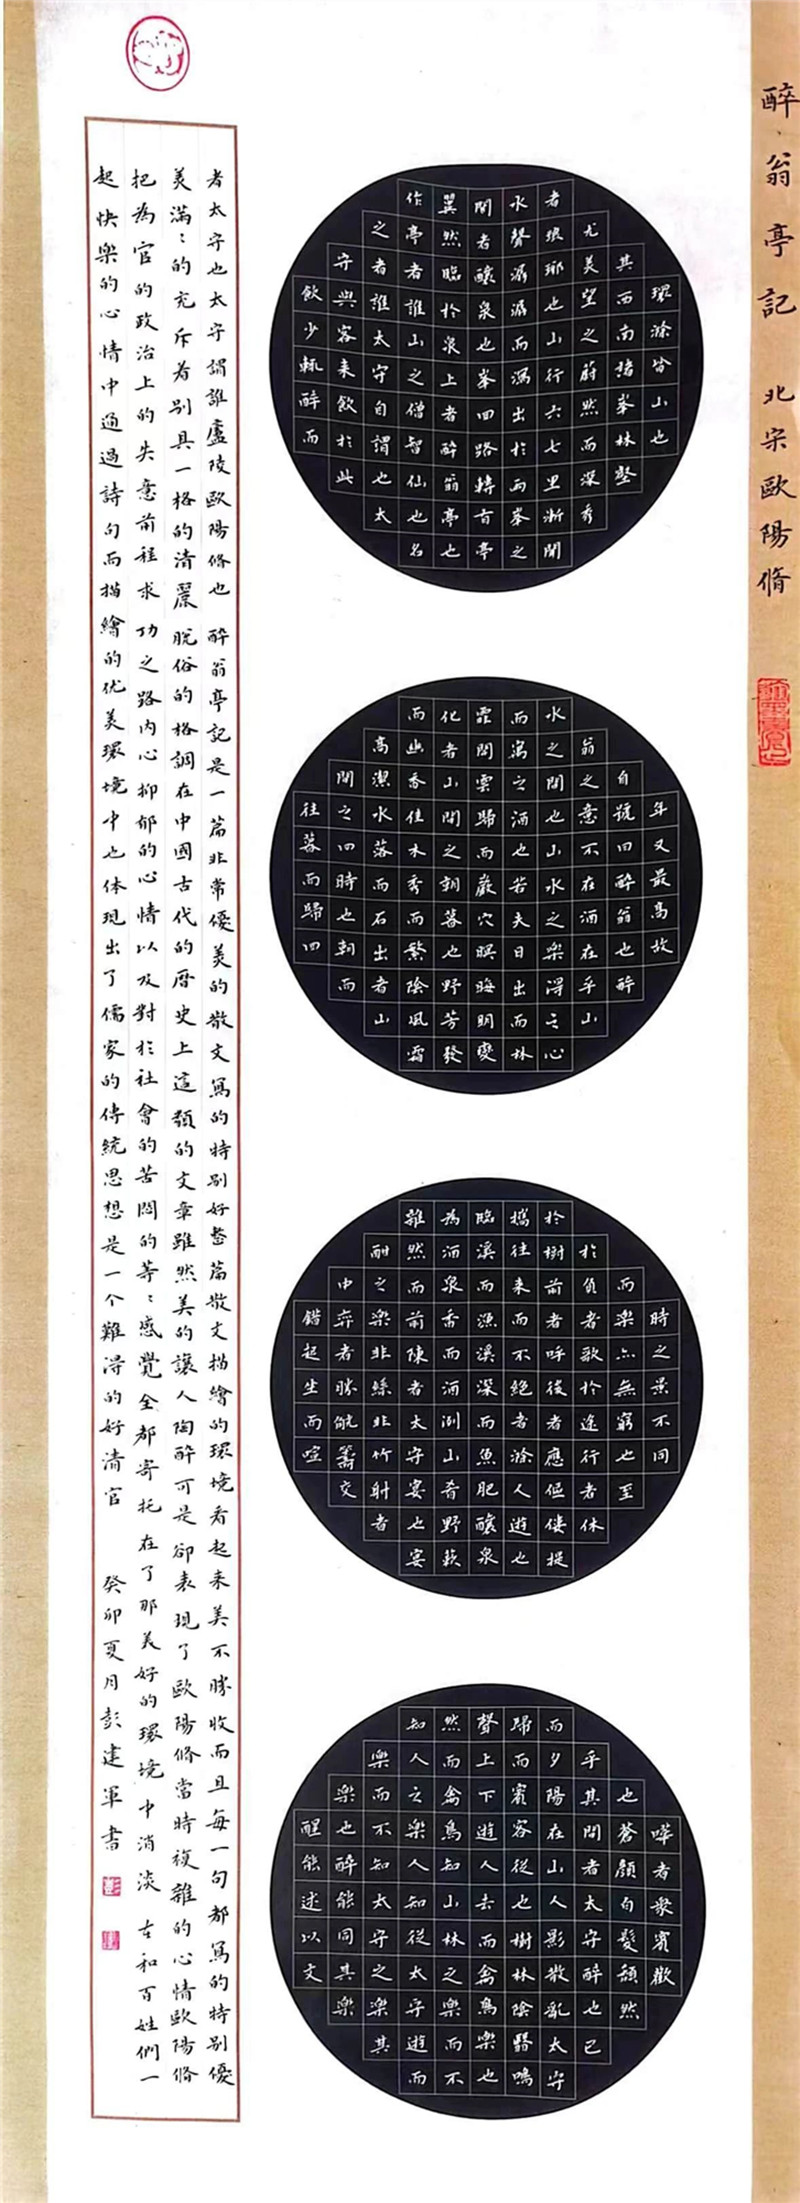 醉翁亭記 北宋歐陽脩
環滁皆山也
其西南諸峯林壑
尤美望之蔚然而深秀
者琅琊也山行六七里漸聞
水聲潺潺而瀉出於两峯之
間者釀泉也峯回路轉有亭
翼然臨於泉上者醉翁亭也
作亭者誰山之僧智仙也名
之者誰太守自謂也太
守與客来飲於此
飲少輒醉而
年又最高故
自號曰醉翁也醉
翁之意不在酒在乎山
水之間也山水之樂得之心
而寓之酒也若夫日出而林
霏開雲歸而巖穴暝晦明變
化者山間之朝暮也野芳發
而幽香佳木秀而繁陰風霜
高潔水落而石出者山
間之四時也朝而
往暮而歸四
時之景不同
而樂亦無窮也至
於負者歌於途行者休
於樹前者呼後者應傴僂提
攜往来而不絕者滁人遊也
臨溪而漁溪深而魚肥釀泉
為酒泉香而酒洌山肴野蔌
雜然而前陳者太守宴也宴
酣之樂非絲非竹射者
中弈者勝觥籌交
錯起坐而喧
嘩者衆賓歡
也蒼顏白髮頹然
乎其間者太守醉也已
而夕陽在山人影散亂太守
歸而賓客從也樹林陰翳鳴
聲上下遊人去而禽鳥樂也
然而禽鳥知山林之樂而不
知人之樂人知從太守遊而
樂而不知太守之樂其
樂也醉能同其樂
醒能述以文
者太守也太守謂誰廬陵歐陽脩也 醉翁亭記是一篇非常優美的散文寫的特别好整篇散文描繪的環境看起来美不勝收而且每一句都寫的特别優
美滿滿的充斥着别具一格的清麗脱俗的格調在中國古代的曆史上這類的文章雖然美的讓人陶醉可是卻表現了歐陽脩當時複雜的心情歐陽脩
把為官的政治上的失意前程求功之路内心抑郁的心情以及對於社會的苦悶的等等感覺全都寄托在了那美好的環境中消淡 在和百姓們一
起快樂的心情中通過詩句而描繪的优美環境中也体現出了儒家的傳統思想是一个難得的好清官 癸卯夏月彭建軍書